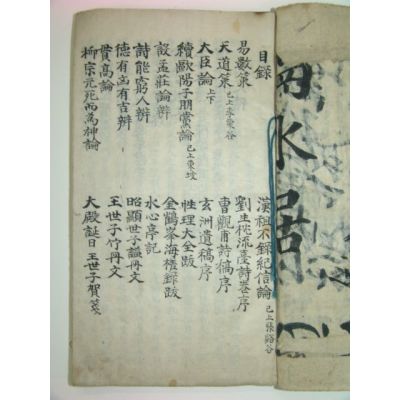 目錄
易數策
天道策 已上李栗谷
大臣論 上下
續歐陽子朋黨論 已上東坡
設孟莊論辨
詩能窮人辨
德有凶有吉辨
貫高論
柳宗元死而為神論
漢祖不錄紀信論 已上張谿谷
劉生從流臺詩卷序
曹觀甫詩稿序
玄洲遺稿序
性理大全跋
金鶴峯海槎錄跋
水心亭記
昭顯世子謚冊文
王世子竹冊文
大殿誕日王世子賀箋